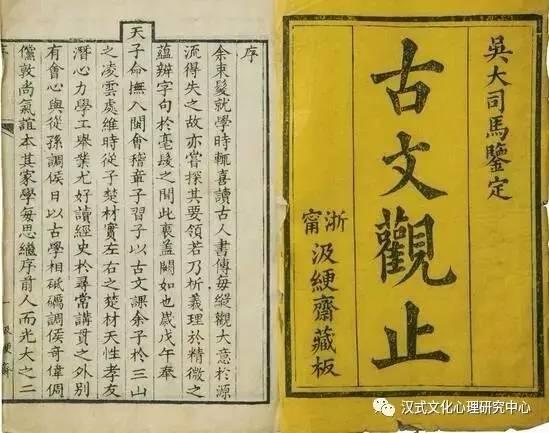 吳大司馬鑒定
古文觀止
浙甯
汲綆齋藏板
序
余束髮就學時輒喜讀古人書傳每縱觀大意於源
流得失之故亦嘗探其要領若乃析義理於精微之
蘊辨字句於毫髮之間此衷蓋闕如也歲戊午奉
天子命撫入閩會稽章子習子以古文課余子於三山
之凌雲處維時從子楚材實左右之楚材天性孝友
潛心力學工舉業尤好讀經史於尋常講貫之外別
有會心與從孫調侯日以古學相砥礪調侯奇偉倜
儻敦尚氣誼本其家學每思繼序前人而光大之二
序
一
汲綆齋
汉式文化心理研究中心